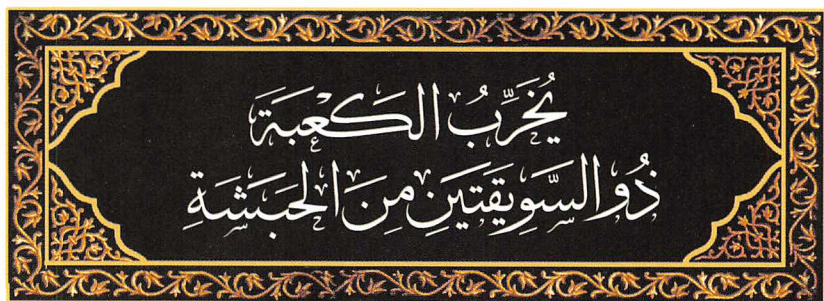 يُخَرِّبُ الكَعْبَةَ
ذُو السَّوِيقَتَيْنِ مِنَ الحَبَشَةِ